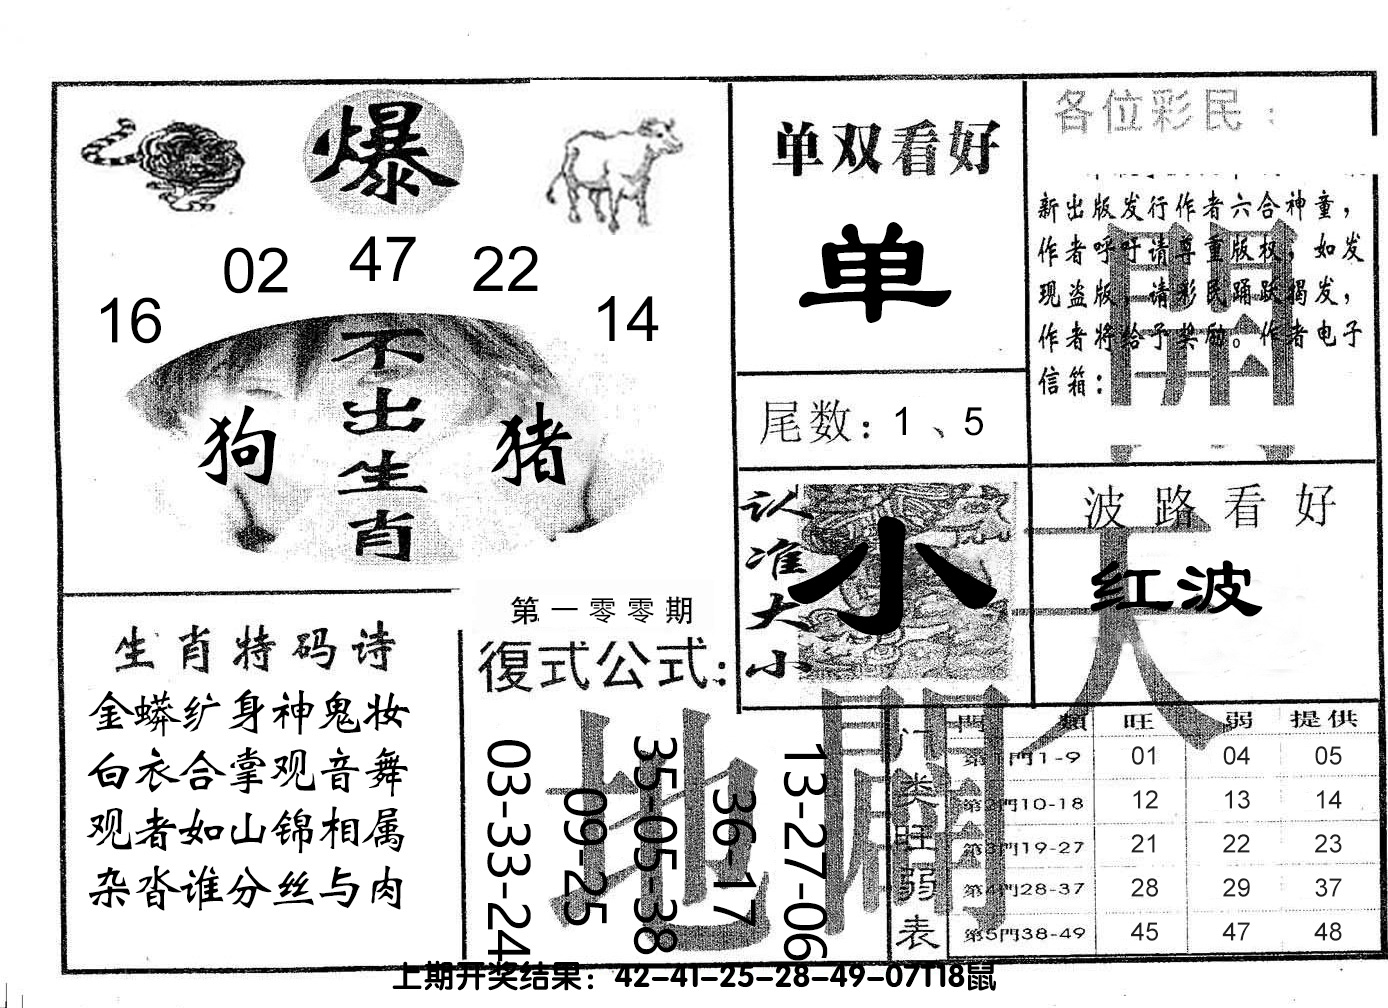 爆
16
02
47
22
14
不出生肖
狗
猪
单双看好
单
尾数：1、5
认准大小
小
各位彩民：
新出版发行作者六合神童，
作者呼吁请尊重版权，如发
现盗版，请彩民踊跃揭发，
作者将给予奖励。作者电子
信箱：
開
波路看好
红波
天
生肖特码诗
金蟒纩身神鬼妆
白衣合掌观音舞
观者如山锦相属
杂沓谁分丝与肉
第一零零期
復式公式：
03-33-24
09-25
35-05-38
36-17
13-27-06
地
闢
门类旺弱表
門類 旺 弱 提供
第1門1-9 01 04 05
第2門10-18 12 13 14
第3門19-27 21 22 23
第4門28-37 28 29 37
第5門38-49 45 47 48
上期开奖结果：42-41-25-28-49-07T18鼠